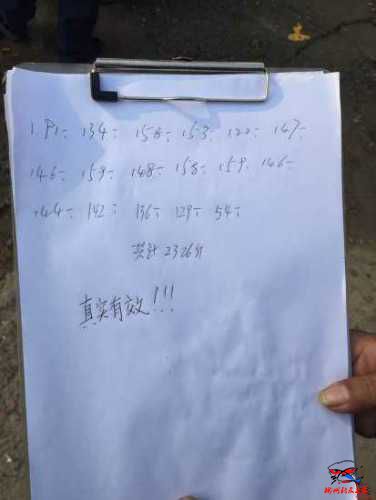 134÷ 158÷ 153÷ 122÷ 147÷
146÷ 159÷ 148÷ 158÷ 159. 146÷
144÷ 142÷ 136÷ 129÷ 54÷
共计2326斤
真实有效!!!